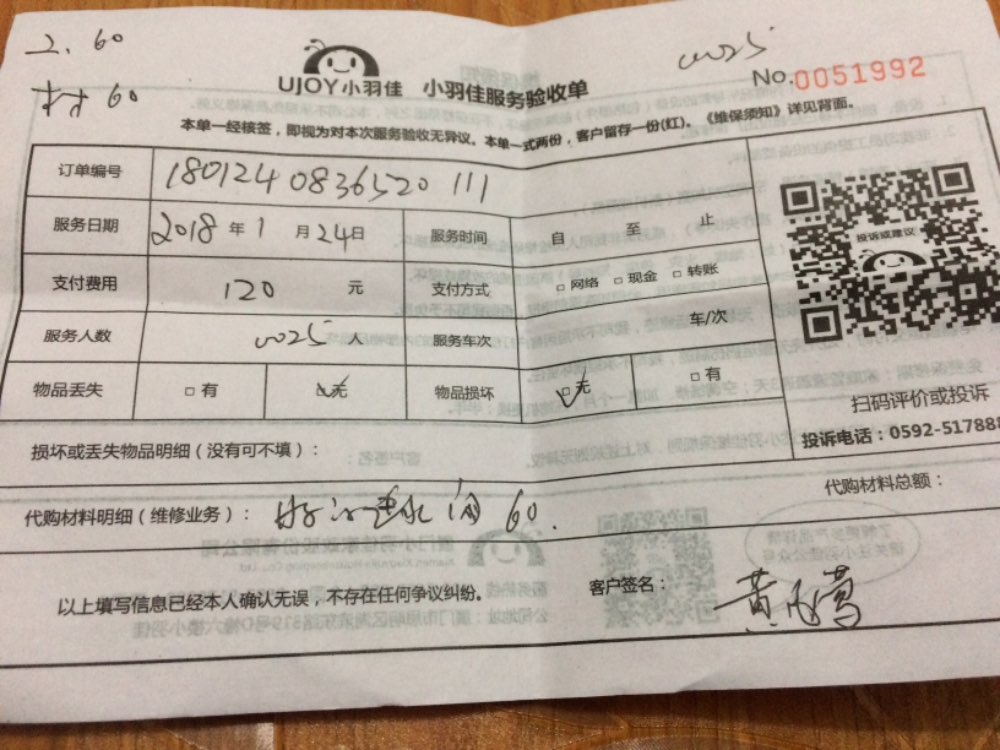 工.60
材60
0025
UJOY小羽佳 小羽佳服务验收单
No.0051992
本单一经核签，即视为对本次服务验收无异议。本单一式两份，客户留存一份(红)。《维保须知》详见背面。
订单编号 180124083652０111
服务日期 2018年1月24日 服务时间 自 至 止
支付费用 120 元 支付方式 □网络 □现金 □转账
服务人数 0025 人 服务车次 车/次
物品丢失 □有 □无 物品损坏 □无 □有
投诉或建议
扫码评价或投诉
投诉电话：0592-517888
损坏或丢失物品明细（没有可不填）：
代购材料明细（维修业务）： 水阀60.
代购材料总额：
以上填写信息已经本人确认无误，不存在任何争议纠纷。
客户签名： 黄